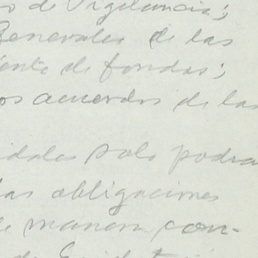 o de Vigilancia;
Generales de las
ente de fondos;
os acuerdos de las
idades solo podra
las obligaciones
de manera con-